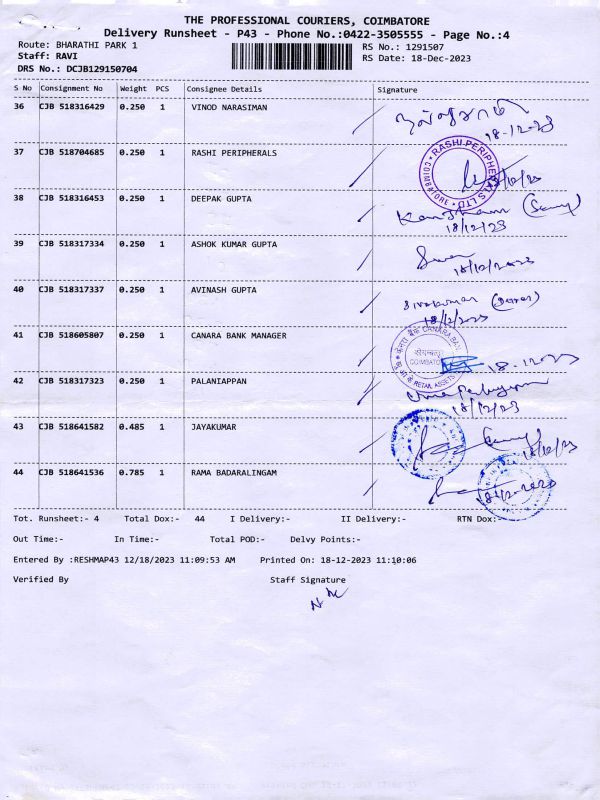 THE PROFESSIONAL COURIERS, COIMBATORE
Delivery Runsheet - P43 - Phone No.:0422-3505555 - Page No.:4
Route: BHARATHI PARK 1 RS No.: 1291507
Staff: RAVI RS Date: 18-Dec-2023
DRS No.: DCJB129150704
S No Consignment No Weight PCS Consignee Details Signature
36 CJB 518316429 0.250 1 VINOD NARASIMAN
18-12-23
37 CJB 518704685 0.250 1 RASHI PERIPHERALS
RASHI PERIPHERALS LTD. COIMBATORE
38 CJB 518316453 0.250 1 DEEPAK GUPTA
18/12/23
39 CJB 518317334 0.250 1 ASHOK KUMAR GUPTA
18/12/2023
40 CJB 518317337 0.250 1 AVINASH GUPTA
Sivakumar
18/12/2023
41 CJB 518605807 0.250 1 CANARA BANK MANAGER
CANARA BANK
COIMBATORE
RETAIL ASSETS
18-12-2023
42 CJB 518317323 0.250 1 PALANIAPPAN
18/12/23
43 CJB 518641582 0.485 1 JAYAKUMAR
18/12/23
44 CJB 518641536 0.785 1 RAMA BADARALINGAM
Tot. Runsheet:- 4 Total Dox:- 44 I Delivery:- II Delivery:- RTN Dox:-
Out Time:- In Time:- Total POD:- Delvy Points:-
Entered By :RESHMAP43 12/18/2023 11:09:53 AM Printed On: 18-12-2023 11:10:06
Verified By Staff Signature